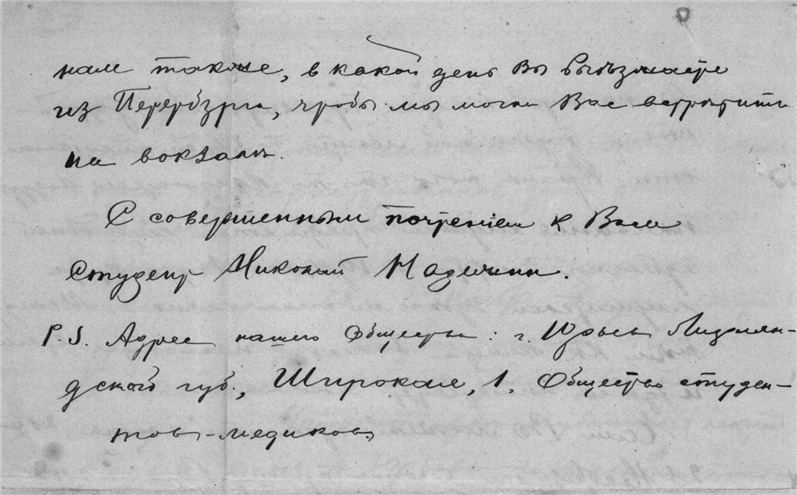 нам также, в какой день Вы выѣзжаете
из Петербурга, чтобы мы могли Вас встрѣтить
на вокзалѣ.
С совершенным почтеніем к Вам
студент Николай
P.S. Адрес нашего Общества: г. Юрьев Лифлян-
дской губ., Широкая, 1. Общество студен-
тов-медиков